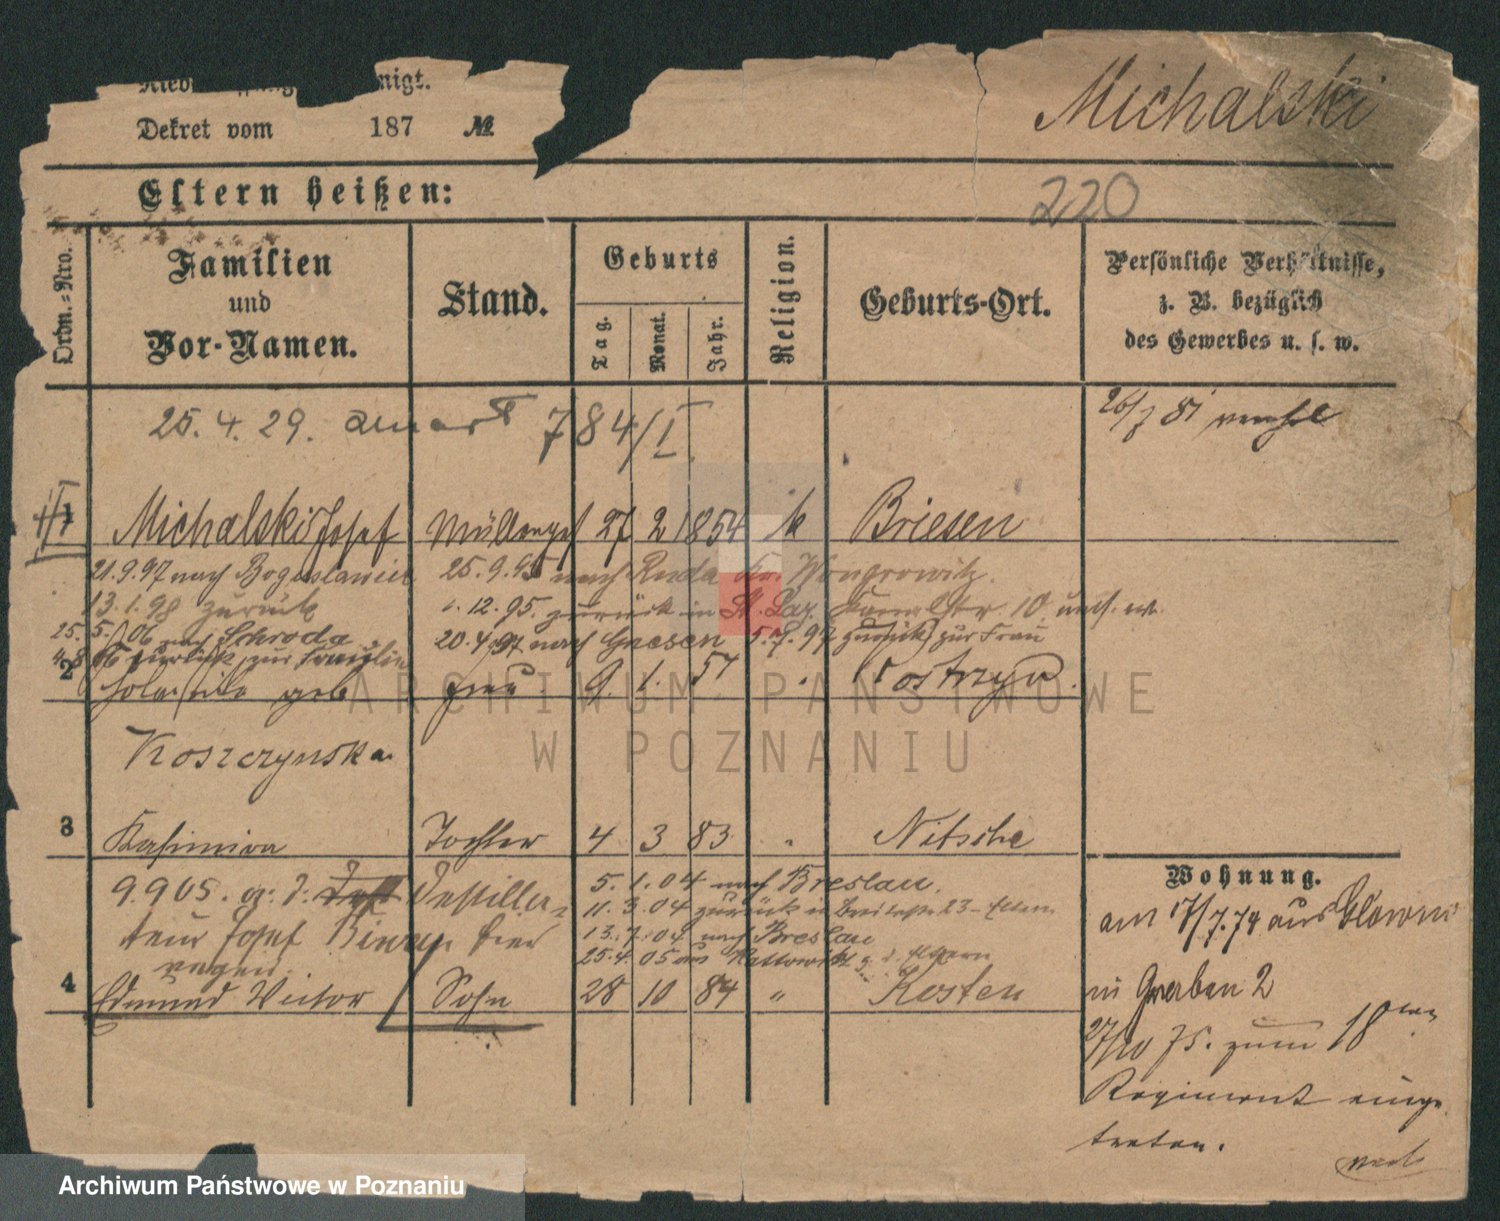 nigt.
Dekret vom 187 №
Michalski
Eltern heißen:
220
Ordn.=Nro.
Familien
und
Vor-Namen.
Stand.
Geburts
Tag.
Monat.
Jahr.
Religion.
Geburts-Ort.
Persönliche Verhältnisse,
z. B. bezüglich
des Gewerbes u. s. w.
25. 4. 29. 784/I
26/7 81
1 Michalski Josef Müllerges 27 2 1854 k Briesen
21.9.97 nach Boguslawiec 25.9.95 nach Ruda Kr. Wongrowitz.
13.1.98 zurück 12.95. zurück in St. Laz. 10
25.5.06 nach Schroda 20.4.97 nach Gnesen 5.7.97 zurück zur Frau
zurück zur Familie
2 geb Frau 9. 1. 57 Kostrzyn.
Koszczynska
3 Kasimira Tochter 4 3 83 " Nitsche
9.9.05. Destilla-
teur Josef
5.1.04 nach Breslau.
11.3.04 zurück in 23 Eltern
13.7.04 nach Breslau
25.4.05 aus Kattowitz z. d. Eltern
4 Edmund Victor Sohn 28 10 84 " Kosten
Wohnung.
am 17/7.74 aus Glowno
in Gerberd 2
27/10 75. zum 18ten
Regiment einge
treten.
ARCHIWUM PAŃSTWOWE
W POZNANIU
Archiwum Państwowe w Poznaniu